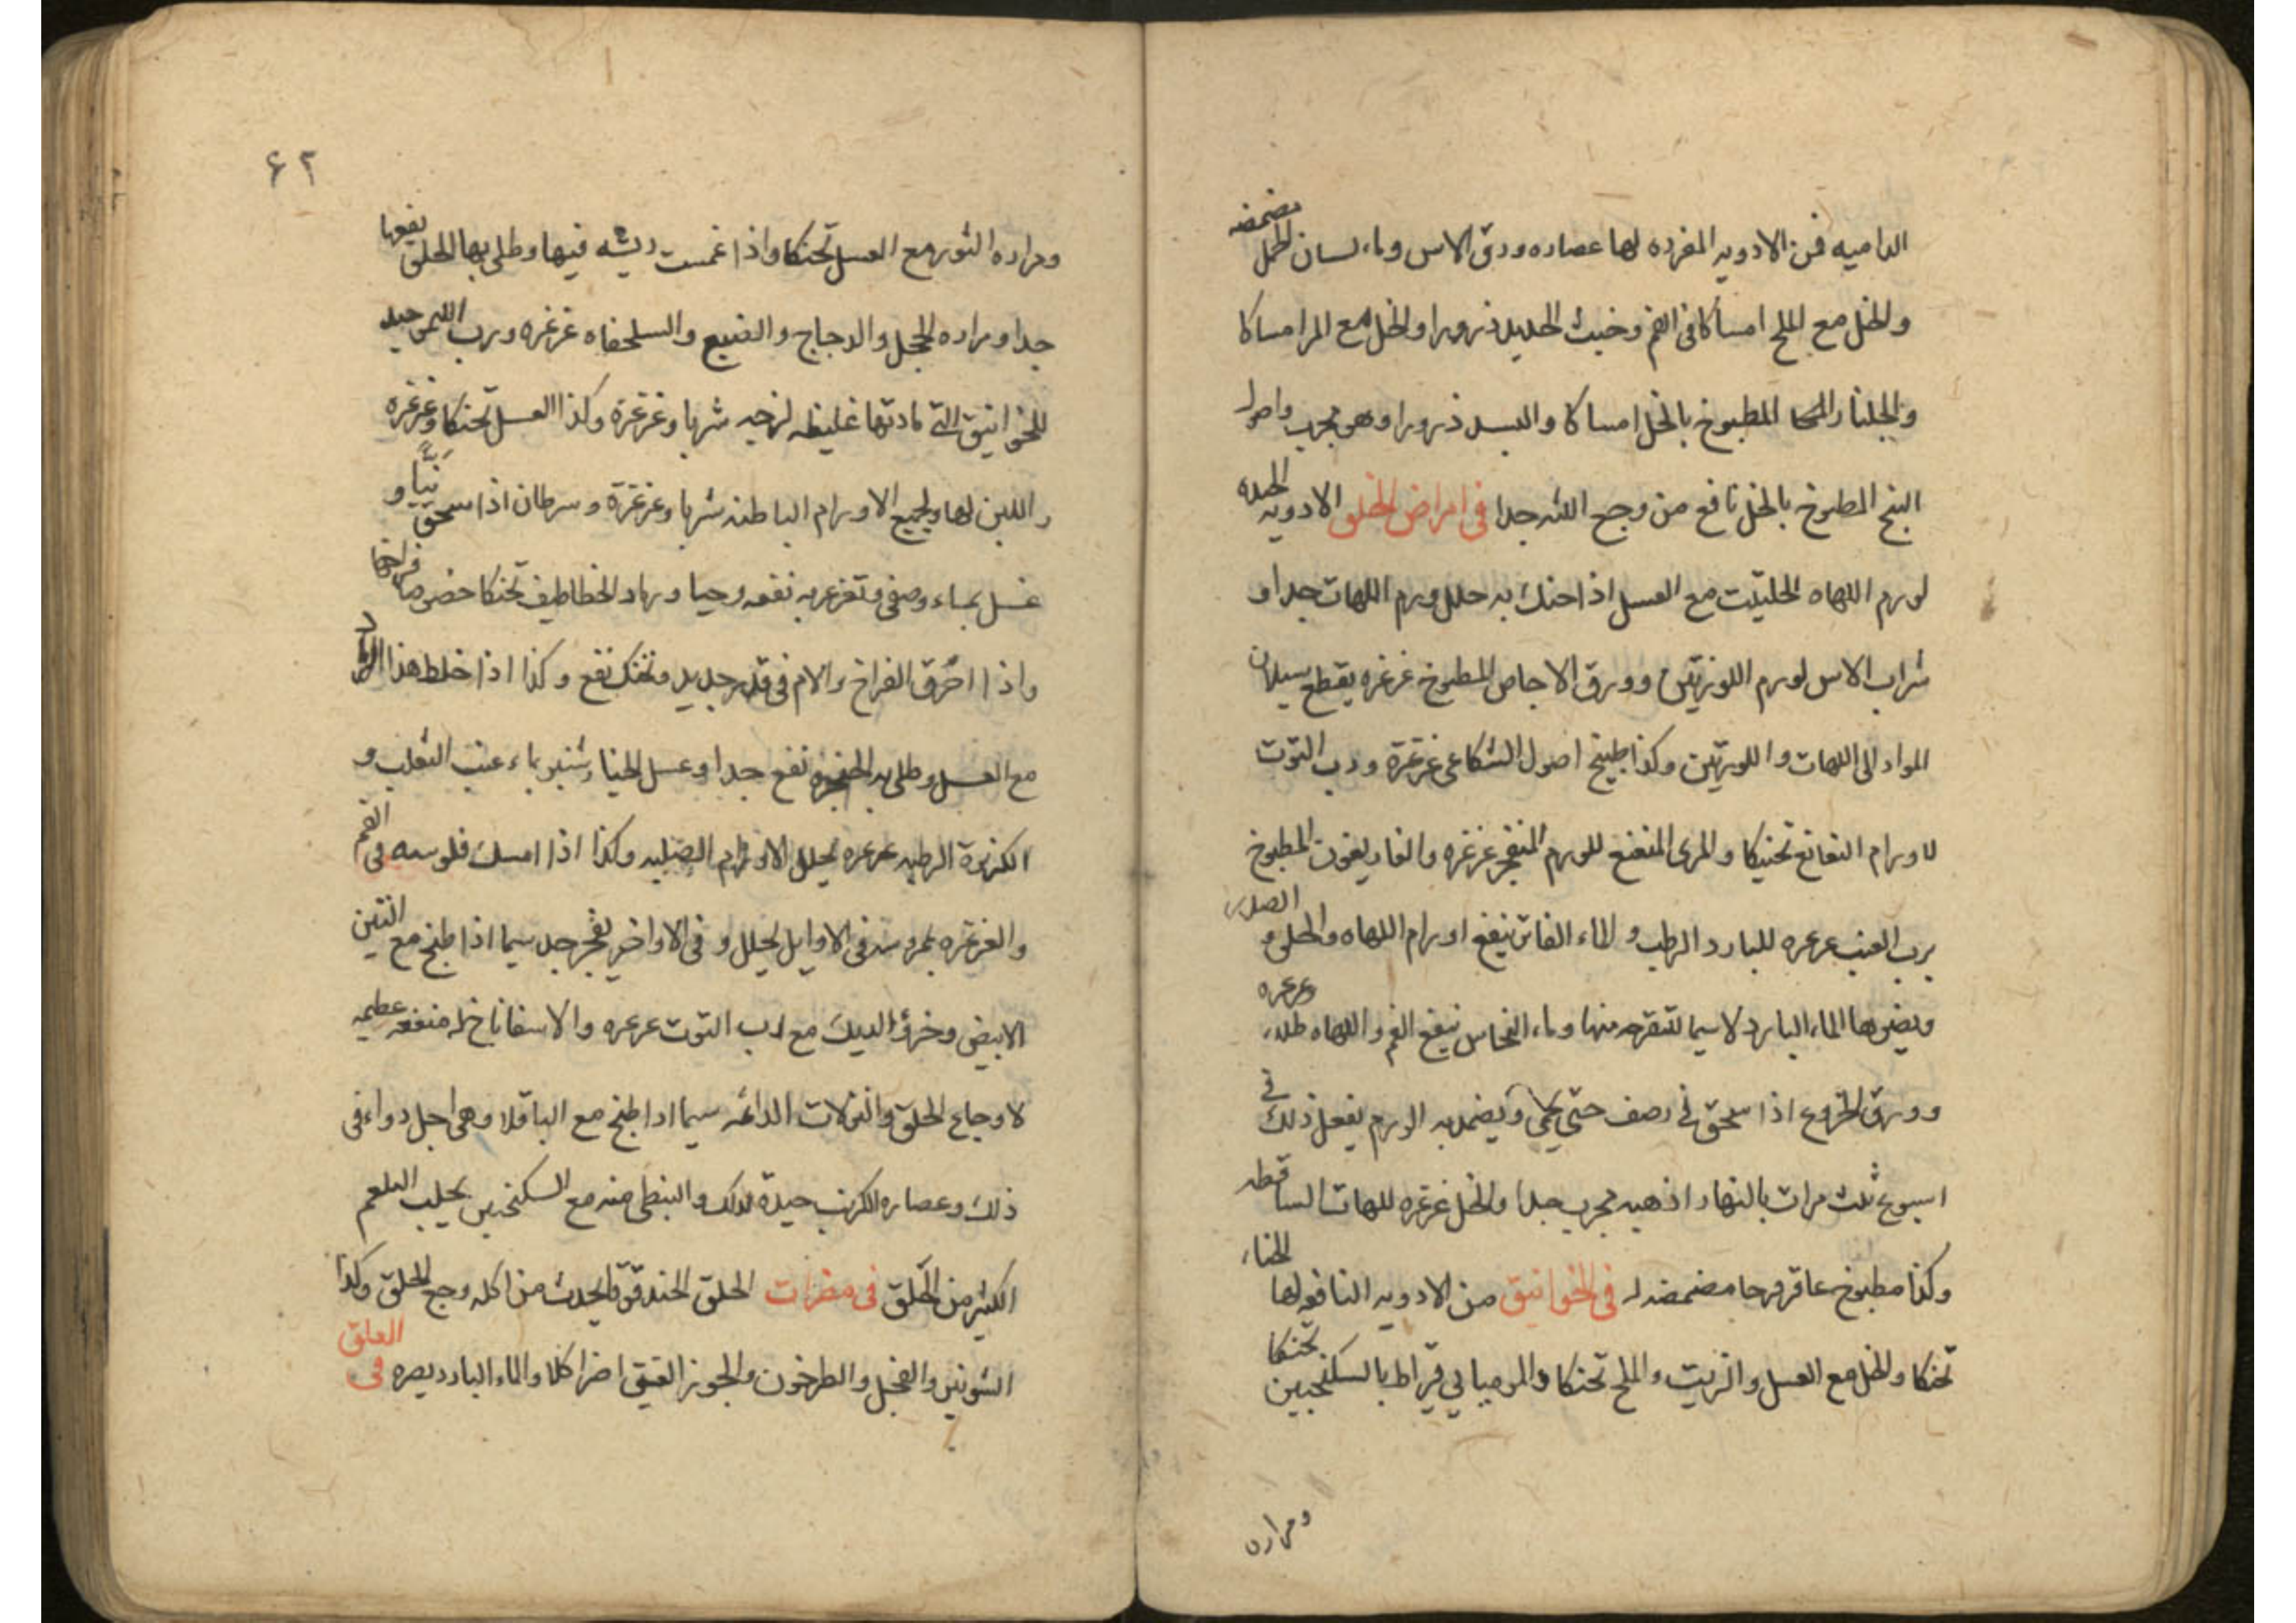 الداميه فمن الادويه المفرده لها عصاره ورق الاس وماء لسان الحمل مضمضه
والخل مع الملح امساكا فى الفم وخبث الحديد ذرورا والخل مع المر امساكا
والجلنار المطبوخ بالخل امساكا والبسد ذرورا وهو مجرب واصول
البنج المطبوخ بالخل نافع من وجع اللثه جدا فى امراض الحلق الادويه الجيده
لورم اللهاه الحلتيت مع العسل اذا حنك به حلل ورم اللهات جدا و
شراب الاس لورم اللوزتين وورق الاجاص المطبوخ غرغره يقطع سيلان
المواد الى اللهات واللوزتين وكذا طبيخ اصول الشكاعى غرغرة ورب التوت
لاورام النغانغ تحنيكا والمرى المنقع للورم المنفجر غرغره والغاريقون المطبوخ
برب العنب غرغره للبارد الرطب والماء الفاتر ينفع اورام اللهاه والحلق والصدر
ويضرها الماء البارد لاسيما للمتقرحه منها وماء النحاس ينفع الفم واللهاه طلاء وغرغره
وورق الخروع اذا سحق فى رصف حتى يحمى ويضمد به الورم يفعل ذلك فى
اسبوع ثلث مرات بالنهار اذهبه مجرب جدا والخل غرغره للهات الساقطه
وكذا مطبوخ عاقرقرحا مضمضه له فى الخوانيق من الادويه النافعه لها الحناء
تحنكا والخل مع العسل والزيت والملح تحنكا والموميايى قيراط بالسكنجبين تحنكا
ومراره
۶۲
ومراره الثور مع العسل تحنكا واذا غمست ريشه فيها وطلى بها الحلق نفعها
جدا ومراره الحجل والدجاج والضبع والسلحفاه غرغره ورب التمر جيد
للخوانيق التى مادتها غليظه لزجه شربا وغرغرة وكذا العسل تحنكا وغرغره
واللبن لها ولجميع الاورام الباطنه شربا وغرغرة وسرطان اذا سحق نيّاً و
غسل بماء وصفى وتغرغر به نفعه وحيا ورماد الخطاطيف تحنكا خصوصا فراخها
واذا احرق الفراخ والام فى قدر جديد وتحنك نفع وكذا اذا خلط هذا الرماد
مع العسل وطلى به الحنجره نفع جدا وعسل الخيارشنبر بماء عنب الثعلب و
الكزبرة الرطبه غرغره يحلل الاورام الصلبه وكذا اذا امسك فلوسه فى الفم
والغرغره بمروسه فى الاوايل يحلل وفى الاواخر يفجر جدا سيما اذا طبخ مع التين
الابيض وخرؤ الديك مع رب التوت غرغره والاسفاناخ له منفعه عظيمه
لاوجاع الحلق والنزلات الدائمه سيما اذا طبخ مع الباقلا وهى اجل دواء فى
ذلك وعصاره الكرنب جيدة لذلك والبنطى منه مع السكنجبين يجلب البلغم
الكثير من الحلق فى مضرات الحلق الحندقوقا يحدث من اكله وجع الحلق وكذا
الشونيز والفجل والطرخون والجوز العتيق اضر اكلا والماء البارد يضره فى العلق